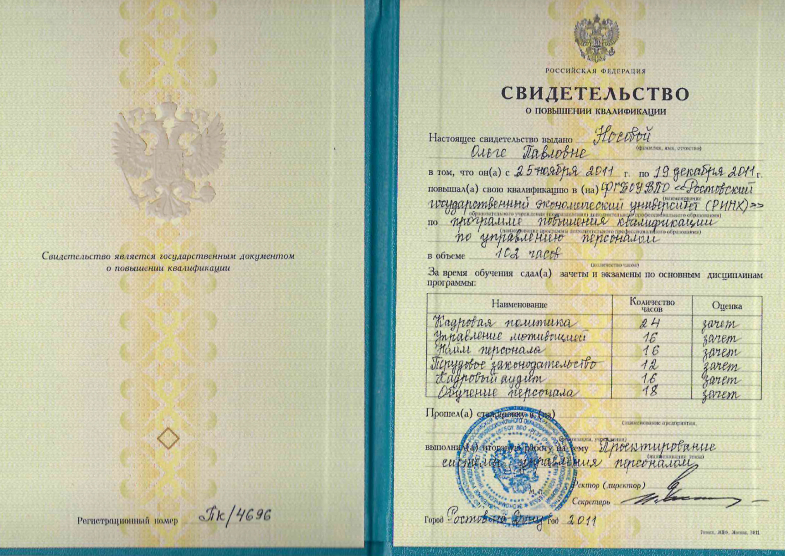 Свидетельство является государственным документом
о повышении квалификации
Регистрационный номер ПК/4696
РОССИЙСКАЯ ФЕДЕРАЦИЯ
СВИДЕТЕЛЬСТВО
О ПОВЫШЕНИИ КВАЛИФИКАЦИИ
Настоящее свидетельство выдано Носовой
(фамилия, имя, отчество)
Ольге Павловне
в том, что он(а) с 25 ноября 2011 г. по 19 декабря 2011 г.
повышал(а) свою квалификацию в (на) ФГБОУ ВПО «Ростовский
(наименование
государственный экономический университет (РИНХ)»
образовательного учреждения (подразделения) дополнительного профессионального образования)
по программе повышения квалификации
(наименование программы дополнительного профессионального образования)
по управлению персоналом
в объеме 102 часов
(количество часов)
За время обучения сдал(а) зачеты и экзамены по основным дисциплинам
программы:
Наименование Количество часов Оценка
Кадровая политика 24 зачет
Управление мотивацией 16 зачет
Найм персонала 16 зачет
Трудовое законодательство 12 зачет
Кадровый аудит 16 зачет
Обучение персонала 18 зачет
Прошел(а) стажировку в (на)
(наименование предприятия,
организации, учреждения)
выполнил(а) итоговую работу на тему Проектирование
(наименование темы)
системы управления персоналом
Ректор (директор)
Секретарь
Город Ростов-на-Дону год 2011